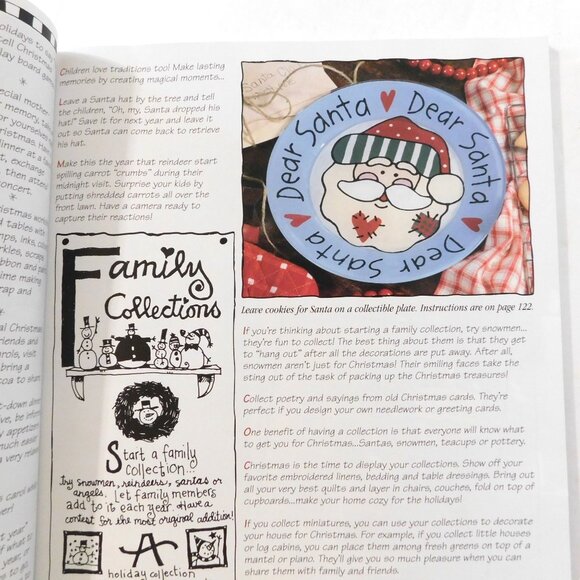 olidays to
ell Christmas
lay board
ecial mother
r memory.
for yourself
dinner at a
t, exchange
then attend
oncert.
*
hristmas
ed tables with
mps, inks,
arkles,
bbon and
time making
rap and
*
ial Christmas
riends and
rols, visit
a to
*
t-down dinner
ve, be
appetizers
much easier
a very
carol
year"
of what
a very
Children love traditions too! Make lasting
memories by creating magical moments...
Leave a Santa hat by the tree and tell
the children, "Oh, my, Santa dropped his
hat!" Save it for next year and leave it
out so Santa can come back to retrieve
his hat.
Make this the year that reindeer start
spilling carrot "crumbs" during their
midnight visit. Surprise your kids by
putting shredded carrots all over the
front lawn. Have a camera ready to
capture their reactions!
Family
Collections
Start a family
collection...
try snowmen, reindeers, santas or
angels. Let family members
add to it each year. Have a
contest for the most original addition!
A
holiday collection
Santa
Dear Santa Dear Santa Dear Santa
Leave cookies for Santa on a collectible plate. Instructions are on page 122.
If you're thinking about starting a family collection, try snowmen...
they're fun to collect! The best thing about them is that they get
to "hang out" after all the decorations are put away. After all,
snowmen aren't just for Christmas! Their smiling faces take the
sting out of the task of packing up the Christmas treasures!
Collect poetry and sayings from old Christmas cards. They're
perfect if you design your own needlework or greeting cards.
One benefit of having a collection is that everyone will know what
to get you for Christmas...Santas, snowmen, teacups or pottery.
Christmas is the time to display your collections. Show off your
favorite embroidered linens, bedding and table dressings. Bring
out all your very best quilts and layer in chairs, couches, fold on top of
cupboards...make your home cozy for the holidays!
If you collect miniatures, you can use your collections to decorate
your house for Christmas. For example, if you collect little houses
or log cabins, you can place them among fresh greens on top of a
mantel or piano. They'll give you so much pleasure when you can
share them with family and friends.